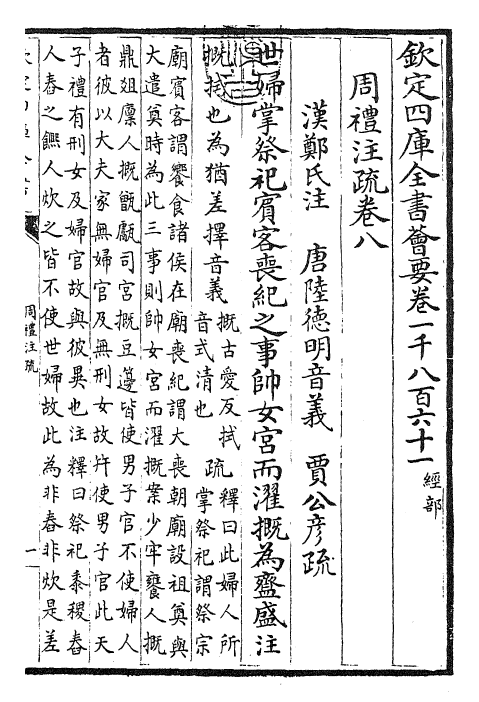 欽定四庫全書薈要卷一千八百六十一 經部
周禮注疏卷八
漢鄭氏注 唐陸德明音義 賈公彥疏
世婦掌祭祀賓客喪紀之事帥女宮而濯摡為齍盛注
摡拭也為猶差擇音義
摡古愛反拭
音式清也
疏
釋曰此婦人所
掌祭祀謂祭宗
廟賓客謂饗食諸侯在廟喪紀謂大喪朝廟設祖奠與
大遣奠時為此三事則帥女宮而濯摡案少牢饔人摡
鼎俎廩人摡甑甗司宮摡豆籩皆使男子官不使婦人
者彼以大夫家無婦官及無刑女故幷使男子官此天
子禮有刑女及婦官故與彼異也注釋曰祭祀黍稷舂
人舂之饎人炊之皆不使世婦故此為非舂非炊是差
周禮注疏
一